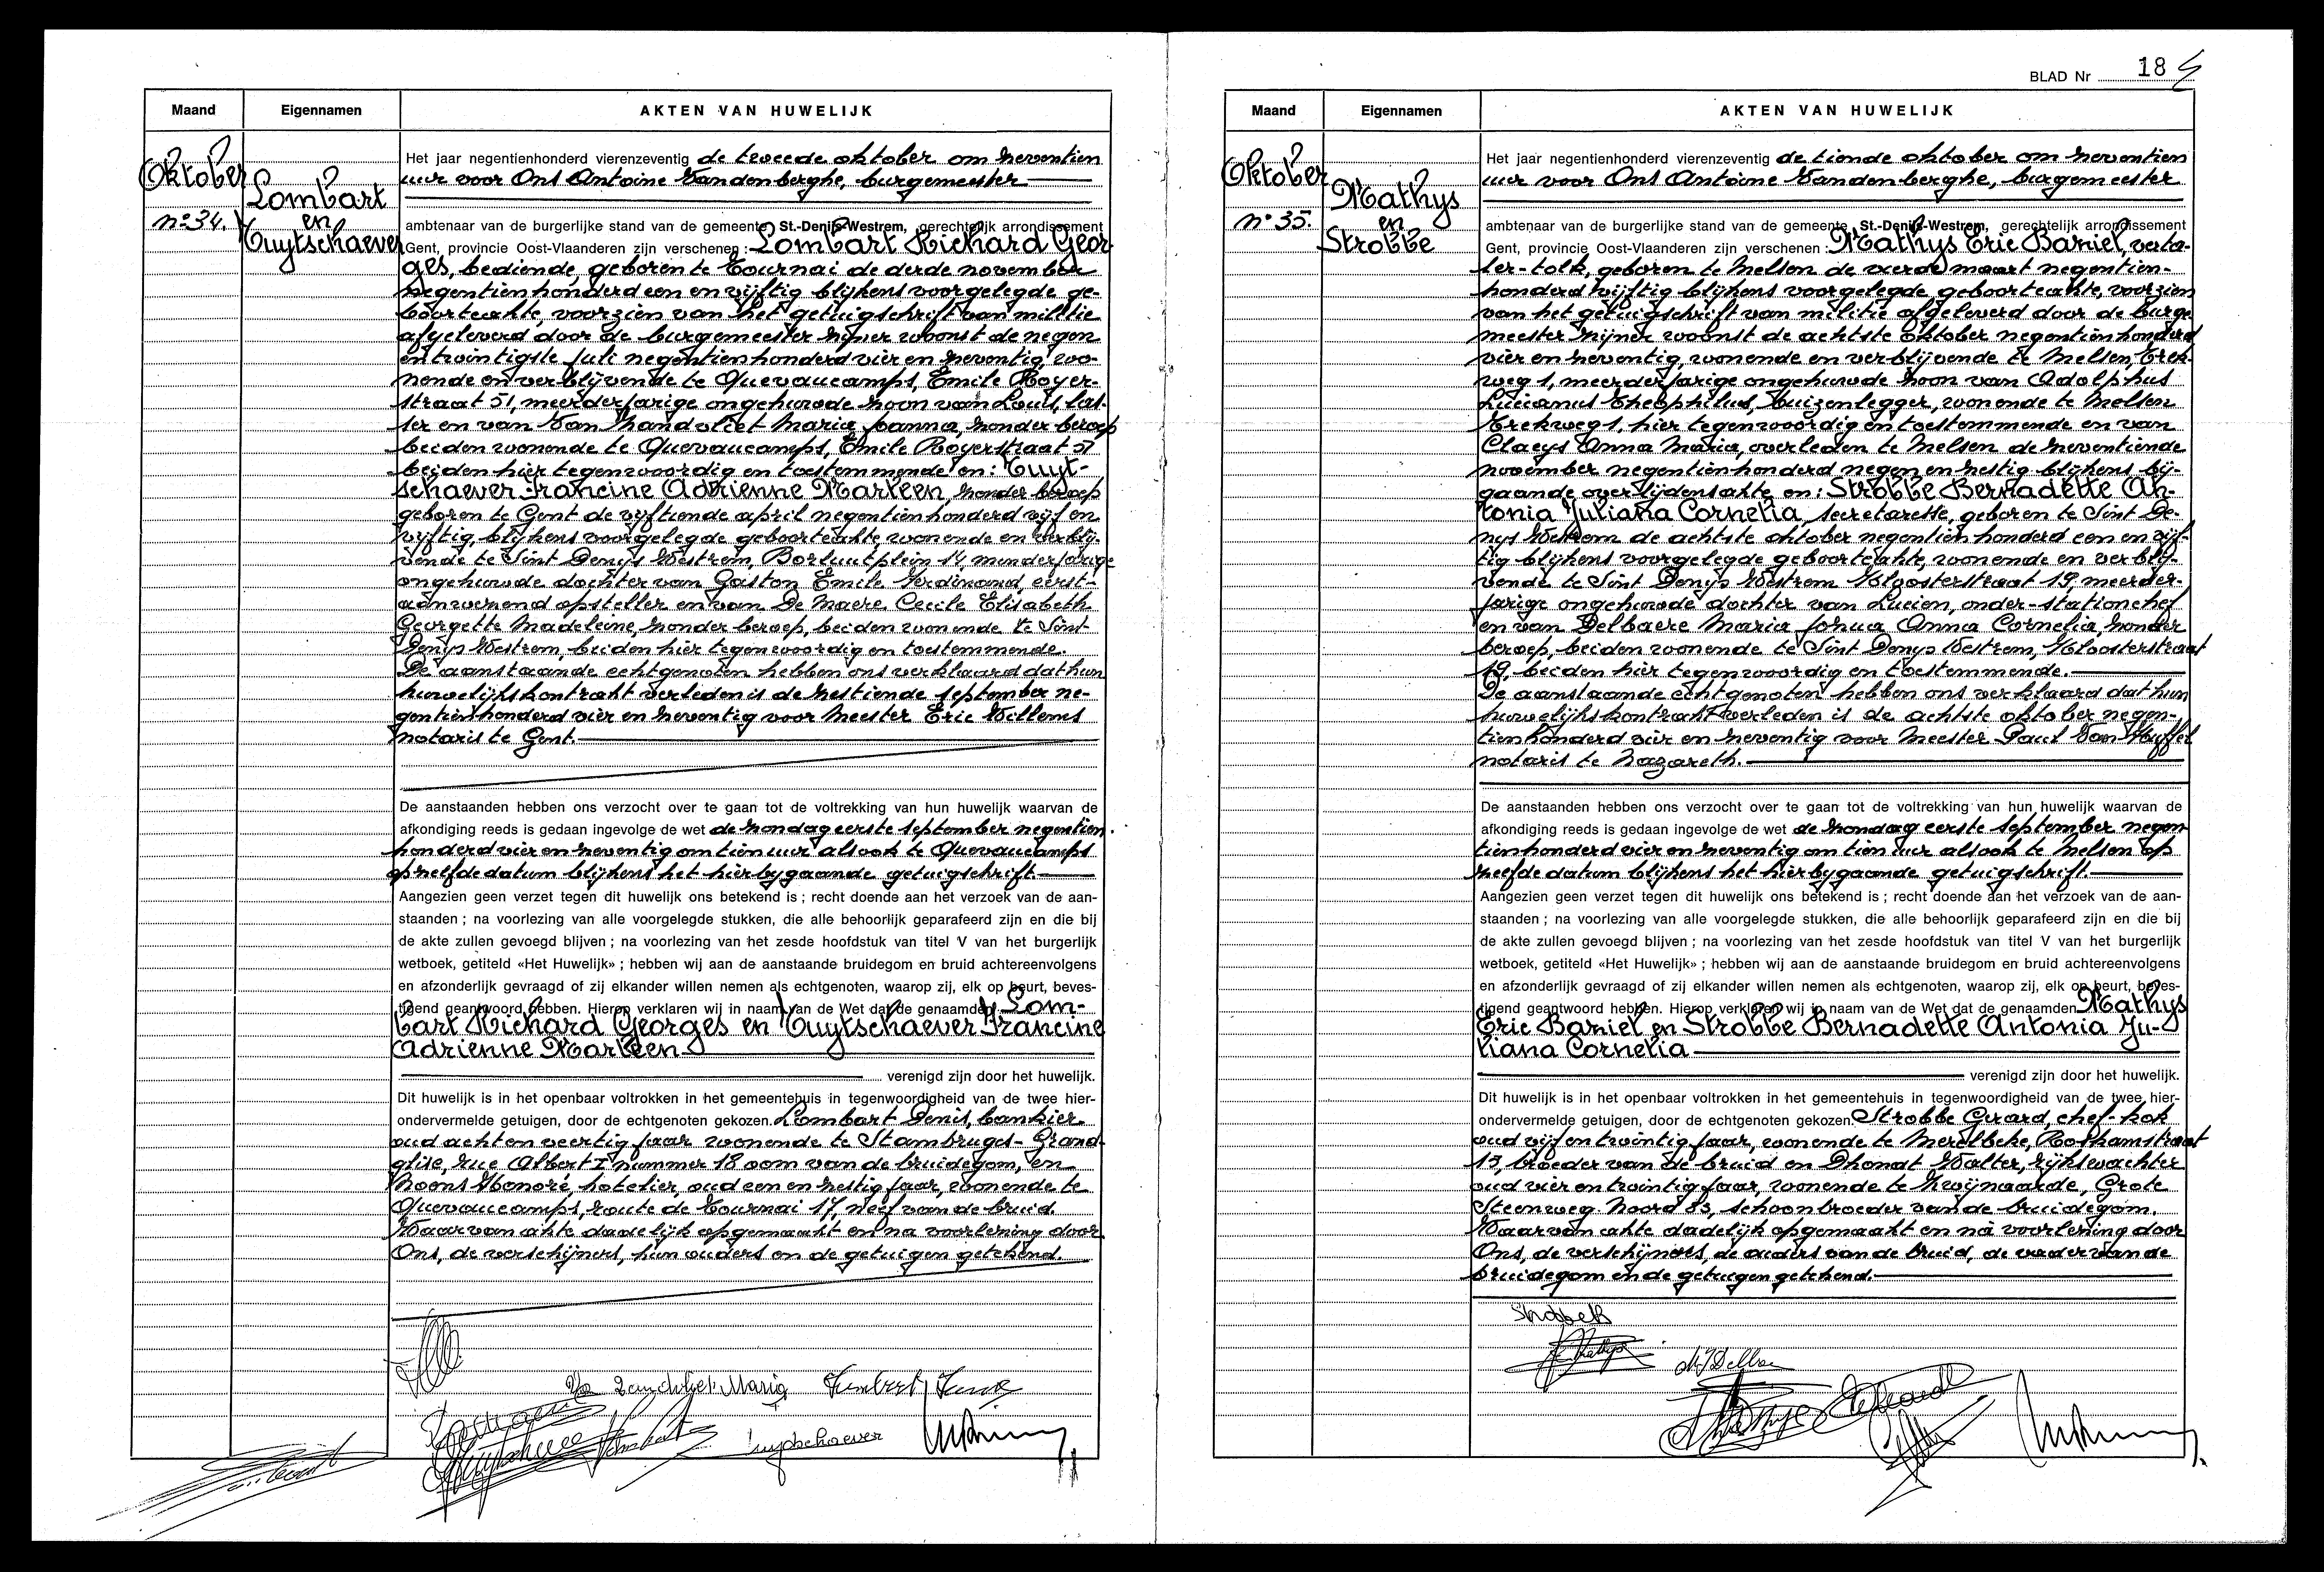 Maand
Eigennamen
AKTEN VAN HUWELIJK
Oktober
n° 34.
Lombart
en
Tuytschaever
Het jaar negentienhonderd vierenzeventig de tweede oktober om zeventien
uur voor Ons Antoine Vandenberghe, burgemeester
ambtenaar van de burgerlijke stand van de gemeente St.-Denijs-Westrem, gerechtelijk arrondissement
Gent, provincie Oost-Vlaanderen zijn verschenen : Lombart Richard Geor-
ges, bediende, geboren te Tournai de derde november
negentienhonderd een en vijftig blijkens voorgelegde ge-
boorteakte, voorzien van het getuigschrift van militie
afgeleverd door de burgemeester zijner woonst de negen
en twintigste juli negentienhonderd vier en zeventig, wo-
nende en verblijvende te Quevaucamps, Emile Royer-
straat 51, meerderjarige ongehuwde zoon van Louis, las-
ser en van Van Zandvliet Maria Joanna, zonder beroep
beiden wonende te Quevaucamps, Emile Royerstraat 51
beiden hier tegenwoordig en toestemmende en: Tuyt-
schaever Francine Adrienne Marleen, zonder beroep
geboren te Gent de vijftiende april negentienhonderd vijf en
vijftig, blijkens voorgelegde geboorteakte, wonende en verblij-
vende te Sint Denijs Westrem, Borluutplein 14, minderjarige
ongehuwde dochter van Gaston Emile Ferdinand, eerst-
aanwezend opsteller en van De Maere Cecile Elisabeth
Georgette Madeleine, zonder beroep, beiden wonende te Sint
Denijs Westrem, beiden hier tegenwoordig en toestemmende.
De aanstaande echtgenoten hebben ons verklaard dat hun
huwelijkskontrakt verleden is de zestiende september ne-
gentienhonderd vier en zeventig voor Meester Eric Willems
notaris te Gent.
De aanstaanden hebben ons verzocht over te gaan tot de voltrekking van hun huwelijk waarvan de
afkondiging reeds is gedaan ingevolge de wet de zondag eerste september negentien-
honderd vier en zeventig om tien uur alsook te Quevaucamps
op zelfde datum blijkens het hierbygaande getuigschrift.
Aangezien geen verzet tegen dit huwelijk ons betekend is ; recht doende aan het verzoek van de aan-
staanden ; na voorlezing van alle voorgelegde stukken, die alle behoorlijk geparafeerd zijn en die bij
de akte zullen gevoegd blijven ; na voorlezing van het zesde hoofdstuk van titel V van het burgerlijk
wetboek, getiteld «Het Huwelijk» ; hebben wij aan de aanstaande bruidegom en bruid achtereenvolgens
en afzonderlijk gevraagd of zij elkander willen nemen als echtgenoten, waarop zij, elk op beurt, beves-
tigend geantwoord hebben. Hierop verklaren wij in naam van de Wet dat de genaamden Lom-
bart Richard Georges en Tuytschaever Francine
Adrienne Marleen
verenigd zijn door het huwelijk.
Dit huwelijk is in het openbaar voltrokken in het gemeentehuis in tegenwoordigheid van de twee hier-
ondervermelde getuigen, door de echtgenoten gekozen. Lombart Denis, bankier
oud acht en veertig jaar wonende te Stambruges-Grand-
glise, rue Albert I nummer 18 oom van de bruidegom, en
Hoens Honoré, hotelier, oud een en zestig jaar, wonende te
Quevaucamps, route de Tournai 17, neef van de bruid.
Waarvan akte dadelijk opgemaakt en na voorlezing door
Ons, de verschijners, hun ouders en de getuigen getekend.
Van Zandvliet Maria
Tuytschaever
BLAD Nr 18
Maand
Eigennamen
AKTEN VAN HUWELIJK
Oktober
n° 35.
Mathys
en
Strobbe
Het jaar negentienhonderd vierenzeventig de tiende oktober om zeventien
uur voor Ons Antoine Vandenberghe, burgemeester
ambtenaar van de burgerlijke stand van de gemeente St.-Denijs-Westrem, gerechtelijk arrondissement
Gent, provincie Oost-Vlaanderen zijn verschenen : Mathys Eric Daniel, verta-
ler-tolk, geboren te Melsen de vierde maart negentien-
honderd vijftig blijkens voorgelegde geboorteakte, voorzien
van het getuigschrift van militie afgeleverd door de burge-
meester zijner woonst de achtste oktober negentienhonderd
vier en zeventig, wonende en verblijvende te Melsen, Krek-
weg 1, meerderjarige ongehuwde zoon van Adolphus
Lucianus Theophilus, buizenlegger, wonende te Melsen
Krekweg 1, hier tegenwoordig en toestemmende en van
Claeys Anna Maria, overleden te Melsen de zeventiende
november negentienhonderd negen en zestig blijkens bij-
gaande overlijdensakte en: Strobbe Bernadette An-
tonia Juliana Cornelia, secretaresse, geboren te Sint De-
nijs Westrem de achtste oktober negentienhonderd een en vijf-
tig blijkens voorgelegde geboorteakte, wonende en verblij-
vende te Sint Denijs Westrem Kloosterstraat 19, meerder-
jarige ongehuwde dochter van Lucien, onder-stationchef
en van Delbaere Maria Josua Anna Cornelia, zonder
beroep, beiden wonende te Sint Denijs Westrem, Kloosterstraat
19, beiden hier tegenwoordig en toestemmende.
De aanstaande echtgenoten hebben ons verklaard dat hun
huwelijkskontrakt verleden is de achtste oktober negen-
tienhonderd vier en zeventig voor Meester Paul Van Wuffel
notaris te Nazareth.
De aanstaanden hebben ons verzocht over te gaan tot de voltrekking van hun huwelijk waarvan de
afkondiging reeds is gedaan ingevolge de wet de zondag eerste september negen-
tienhonderd vier en zeventig om tien uur alsook te Melsen op
zelfde datum blijkens het hierbygaande getuigschrift.
Aangezien geen verzet tegen dit huwelijk ons betekend is ; recht doende aan het verzoek van de aan-
staanden ; na voorlezing van alle voorgelegde stukken, die alle behoorlijk geparafeerd zijn en die bij
de akte zullen gevoegd blijven ; na voorlezing van het zesde hoofdstuk van titel V van het burgerlijk
wetboek, getiteld «Het Huwelijk» ; hebben wij aan de aanstaande bruidegom en bruid achtereenvolgens
en afzonderlijk gevraagd of zij elkander willen nemen als echtgenoten, waarop zij, elk op beurt, beves-
tigend geantwoord hebben. Hierop verklaren wij in naam van de Wet dat de genaamden Mathys
Eric Daniel en Strobbe Bernadette Antonia Ju-
liana Cornelia
verenigd zijn door het huwelijk.
Dit huwelijk is in het openbaar voltrokken in het gemeentehuis in tegenwoordigheid van de twee hier-
ondervermelde getuigen, door de echtgenoten gekozen. Strobbe Gerard, chef-kok
oud vijf en twintig jaar, wonende te Merelbeke, Roskamstraat
13, broeder van de bruid en Dhondt Walter, rijkswachter
oud vier en twintig jaar, wonende te Zwijnaarde, Grote
Steenweg Noord 83, schoonbroeder van de bruidegom.
Waarvan akte dadelijk opgemaakt en na voorlezing door
Ons, de verschijners, de ouders van de bruid, de vader van de
bruidegom en de getuigen getekend.
StrobbeB